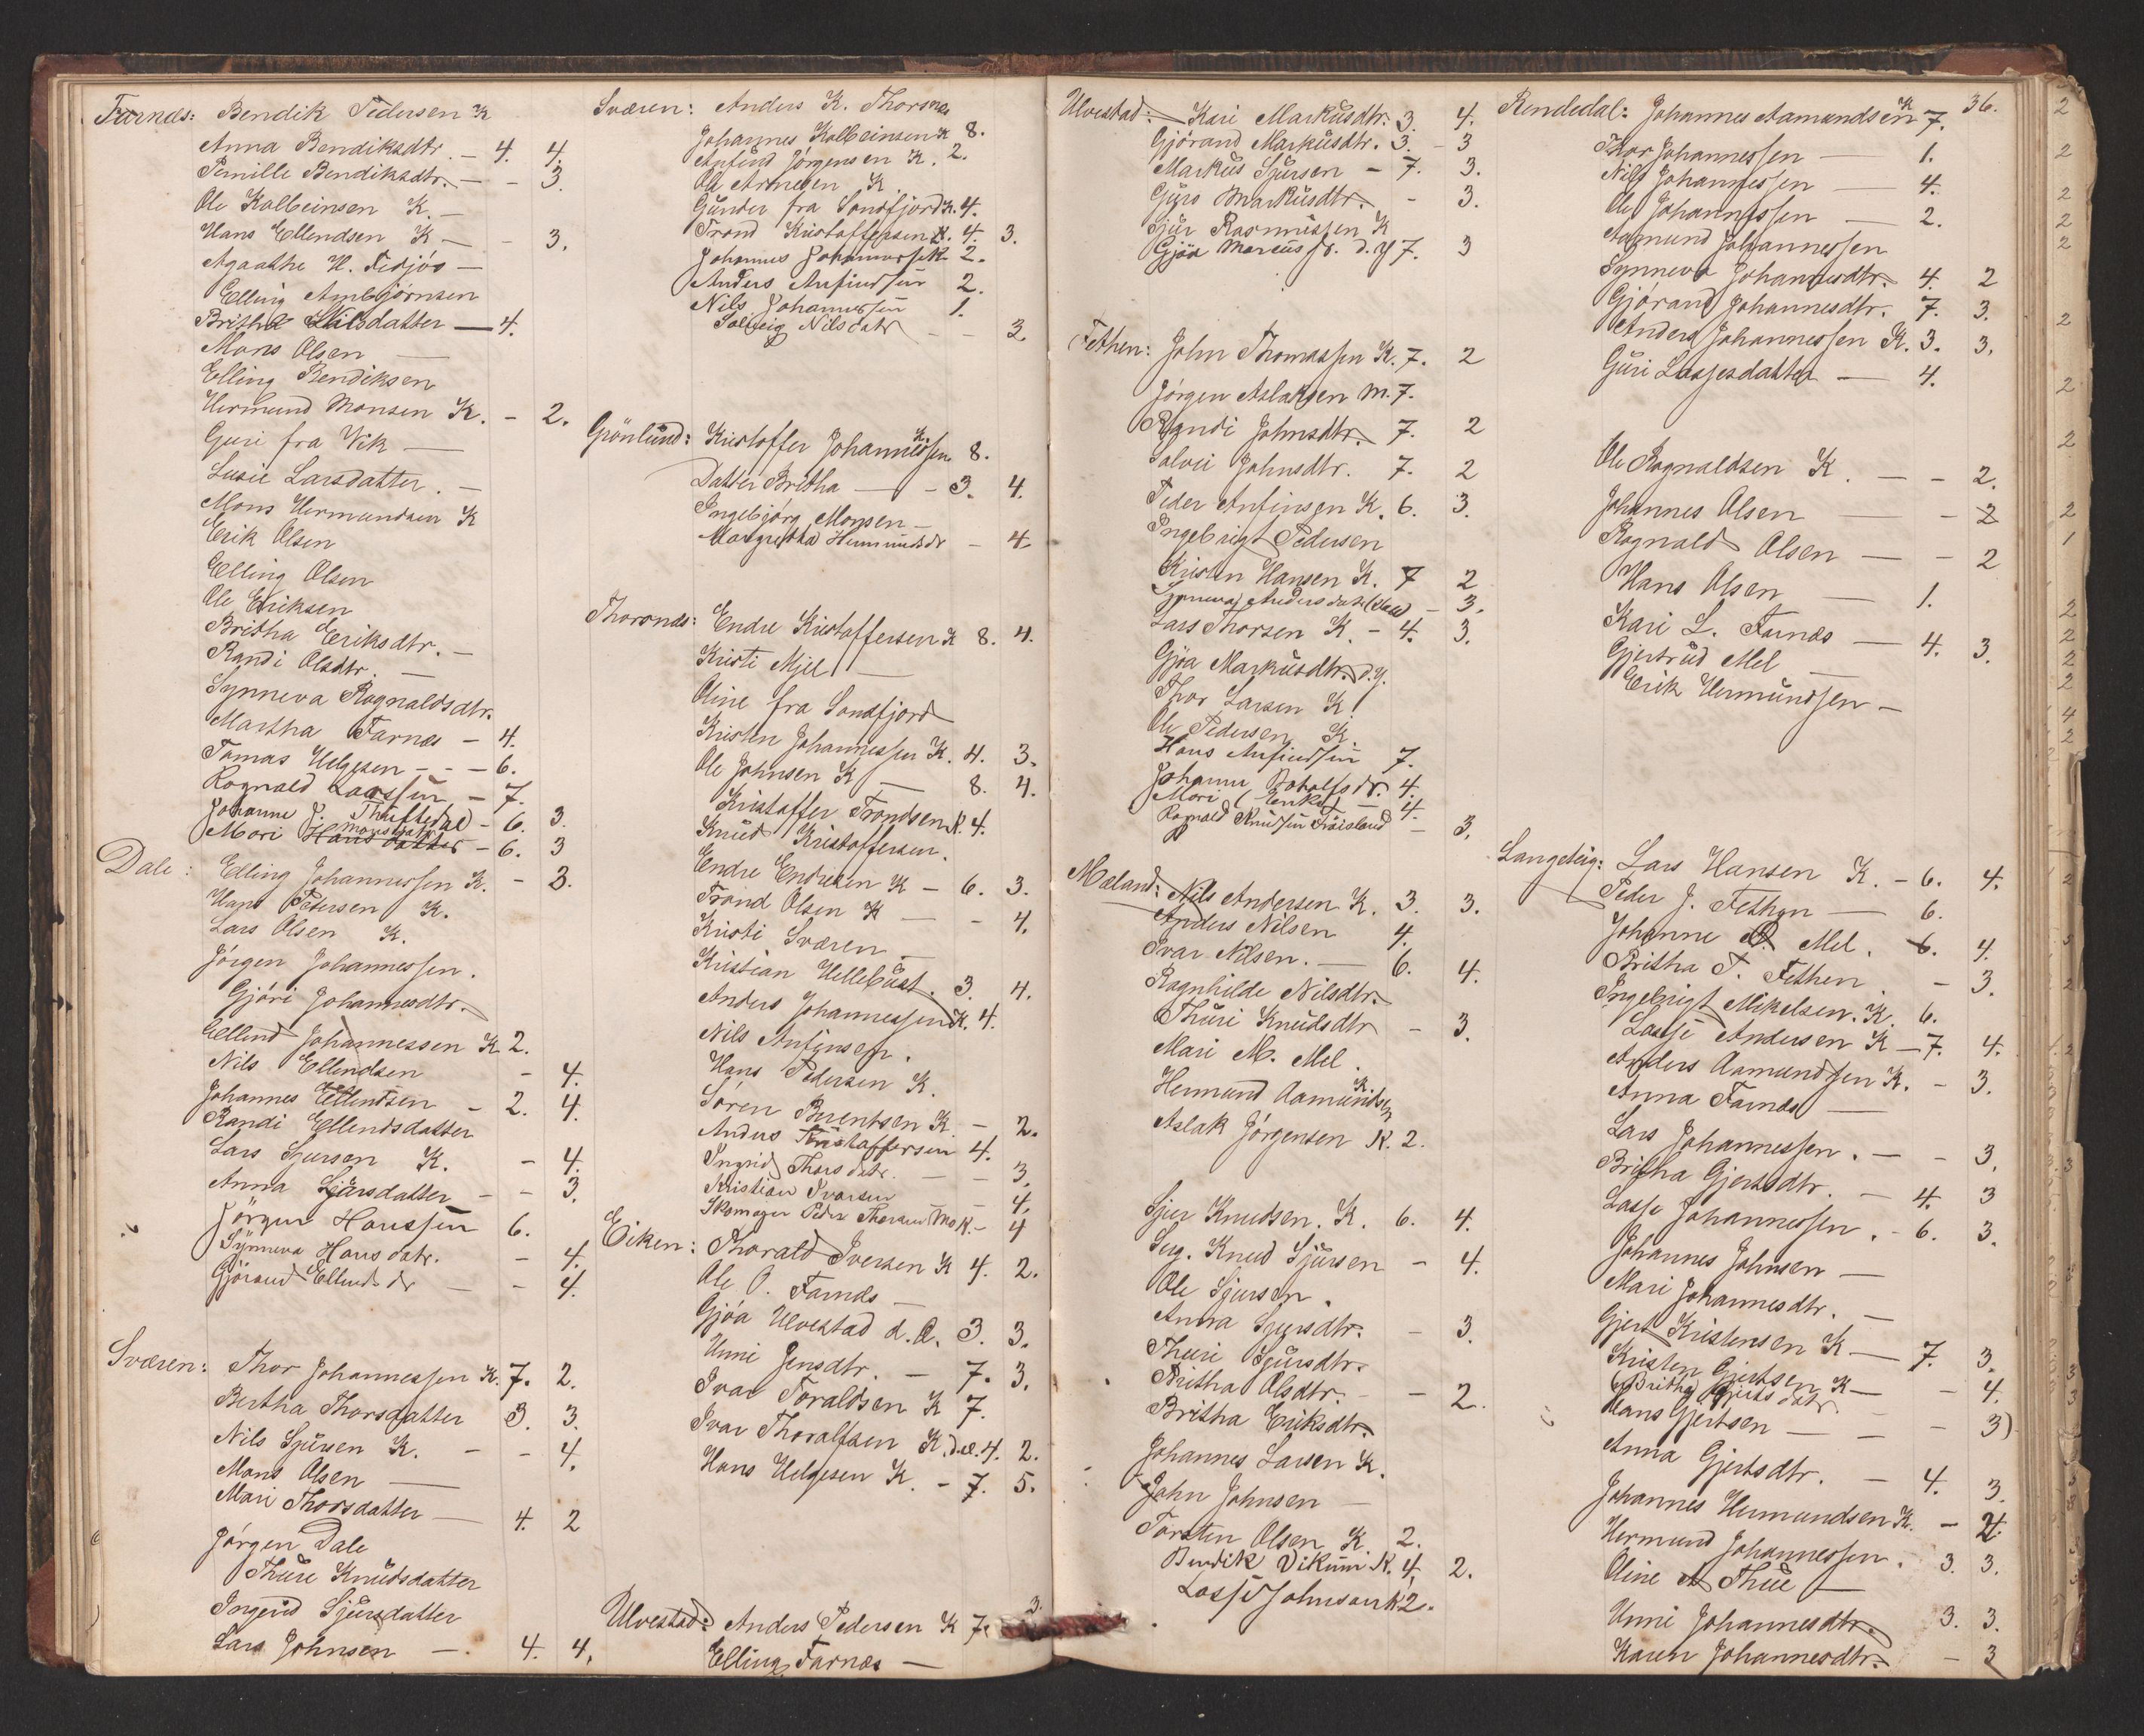 Farnæs: Bendik Pedersen K
Anna Bendiksdtr. – 4. 4.
Pernille Bendiksdtr. – – 3.
Ole Kolbeinsen K. –
Hans Ellendsen K – – 3.
Agaathe H. Fedjós –
Elling Ambjórnsen
Britha Nilsdatter – 4.
Mons Olsen –
Elling Bendiksen
Hermund Monsen K. – 2.
Guri fra Vik –
Susie Larsdatter. –
Mons Hermundsen K
Erik Olsen
Elling Olsen
Ole Eriksen
Britha Eriksdtr. –
Randi Olsdtr. –
Synneva Ragnaldsdtr.
Martha Farnæs – 4.
Tomas Helgesen – – – 6.
Rognald Larssen – 7.
Johanne J. Thuftedal – 6. 3.
Mari Monsdatter – 6. 3
Dale: Elling Johannessen K. – 3.
Hans Pedersen K.
Lars Olsen K.
Jórgen Johannessen.
Gjóri Johannesdtr.
Ellend Johannessen K 2.
Nils Ellendsen – 4.
Johannes Ellendsen – 2. 4.
Randi Ellendsdatter
Lars Sjursen K. – 4.
Anna Sjursdatter – – 3.
Jörgen Hanssen 6.
Synneva Hansdatr. – 4.
Gjörand Ellendsdr – – 4.
Sværen: Thor Johannessen K. 7. 2.
Bertha Thorsdatter 3. 3.
Nils Sjursen K. – – 4.
Mons Olsen –
Mari Thorsdatter – 4. 2
Jórgen Dale
Thure Knudsdatter
Ingerid Sjursdatter
Lars Johnsen – 4. 4.
Sværen: Anders K. Thorsnæs
Johannes Kolbeinsen K 8.
Anfind Jórgensen K. 2.
Ole Arnesen K.
Gunder fra Sondfjord K. 4.
Trond Kristoffersen K. 4. 3.
Johannes Johannessen K 2.
Anders Anfindsen 2.
Nils Johannessen 1.
Solveig Nilsdatr – – 3
Grónlund: Kristoffer Johannessen K. 8.
Datter Britha – – 3. 4.
Ingebjórg Monsen –
Margretha Hermundsdr – 4
Thorsnæs: Endre Kristoffersen K 8. 4.
Kristi Mjell –
Oline fra Sondfjord
Kristen Johannessen K. 4. 3.
Ole Johnsen K – 8. 4.
Kristoffer Trondsen K. 4.
Knud Kristoffersen.
Endre Endresen K – 6. 3.
Trond Olsen K – – 4.
Kristi Sværen –
Kristian Hellebust. 3. 4.
Anders Johannessen K. 4.
Nils Anfinsen.
Hans Pedersen K.
Sóren Berentsen K. – 2.
Anders Kristoffersen 4.
Ingrid Thorsdatr. – – 3.
Kristian Ivarsen – – 4.
Skomager Peder Thorsen Mo K. – 4
Eiken: Thorald Iversen K 4. 2.
Ole O. Farnæs –
Gjóa Ulvestad d. Æ. 3. 3.
Unni Jensdtr. – 7. 3.
Ivar Toraldsen K 7.
Ivar Thoralfsen K. d.æ. 4. 2.
Hans Helgesen K. – 7. 5.
Ulvestad: Anders Pedersen K 7. 3.
Elling Farnæs –
Ulvestad: Kari Markusdtr. 3. 4.
Gjórand Markusdtr. 3. – 3
Markus Sjursen – 7. 3.
Guro Markusdtr. – 3.
Sjur Rasmussen K
Gjöa Marcusdr. d. y 7. 3
Fethen: John Thomassen K. 7. 2
Jórgen Aslaksen M. 7.
Randi Johnsdtr. 7. 2
Solvei Johnsdtr. 7. 2
Peder Anfinsen K. 6. 3.
Ingebrigt Pedersen
Kristen Hansen K. 7 2
Synneva Andersdatr – 3.
Lars Thorsen K. – 4. 3.
Gjóa Markusdtr. d. y.
Thor Larsen K.
Ole Pedersen K.
Hans Anfindsen 7.
Johanne Botolfsdr. 4.
Mari (Enke) – 4.
Rognald Knudsen Fróisland – 3.
Mæland: Nils Andersen K. 3. 3.
Anders Nilsen 4.
Ivar Nilsen. – 6. 4.
Ragnhilde Nilsdtr.
Thuri Knudsdtr – 3.
Mari M. Mel.
Hermund Aamundsen K.
Aslak Jórgensen K. 2.
Sjur Knudsen. K. 6. 4.
Serg. Knud Sjursen – 4.
Ole Sjursen.
Anna Sjursdtr. – 3.
Thuri Sjursdtr.
Britha Olsdtr. – – 2.
Britha Eriksdtr.
Johannes Larsen K.
John Johnsen –
Torsten Olsen K. 2.
Bendik Vikum K. 4. 2.
Lasse Johnson K 2.
Rendedal: Johannes Aamundsen K 7. 36.
Thor Johannessen – 1.
Nils Johannessen – 4.
Ole Johannessen – 2.
Aamund Johannessen
Synneva Johannesdtr. 4. 2
Gjórand Johannesdtr. 7. 3.
Anders Johannessen K. 3. 3.
Guri Lassesdatter – 4.
Ole Rognaldsen K. – – 2.
Johannes Olsen – – 2
Rognald Olsen – – 2
Hans Olsen – 1.
Kari L. Farnæs – 4. 3.
Gjertrud Mel –
Erik Hermundsen –
Langeteig: Lars Hansen K. – 6. 4.
Peder J. Fethen – 6.
Johanne Mel. 6. 4.
Britha T. Fethen – 3.
Ingebrigt Mikelsen. K. 6.
Lasse Andersen K – 7. 4.
Anders Aamundsen K. – 3.
Anna Farnæs –
Lars Johannessen. – – 3.
Britha Gjertsdtr. – 4. 3
Lasse Johannessen. – 6. 3.
Johannes Johnsen –
Mari Johannesdtr. –
Gjert Kristensen K – 7. 3.
Kristen Gjertsen K – – 4.
(Britha Gjertsdatr.
Hans Gjertsen – – – 3)
Anna Gjertsdtr. – 4. 3.
Johannes Hermundsen K. – 4.
Hermund Johannessen. 3. 3.
Oline Thue –
Unni Johannesdtr. 3. 3.
Karen Johannesdtr. – 3